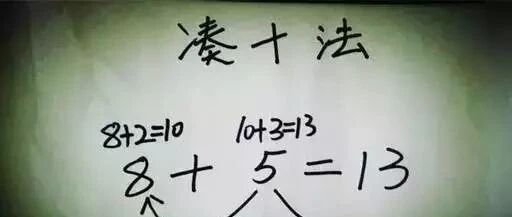 凑十法
8+2=10 10+3=13
8+5=13